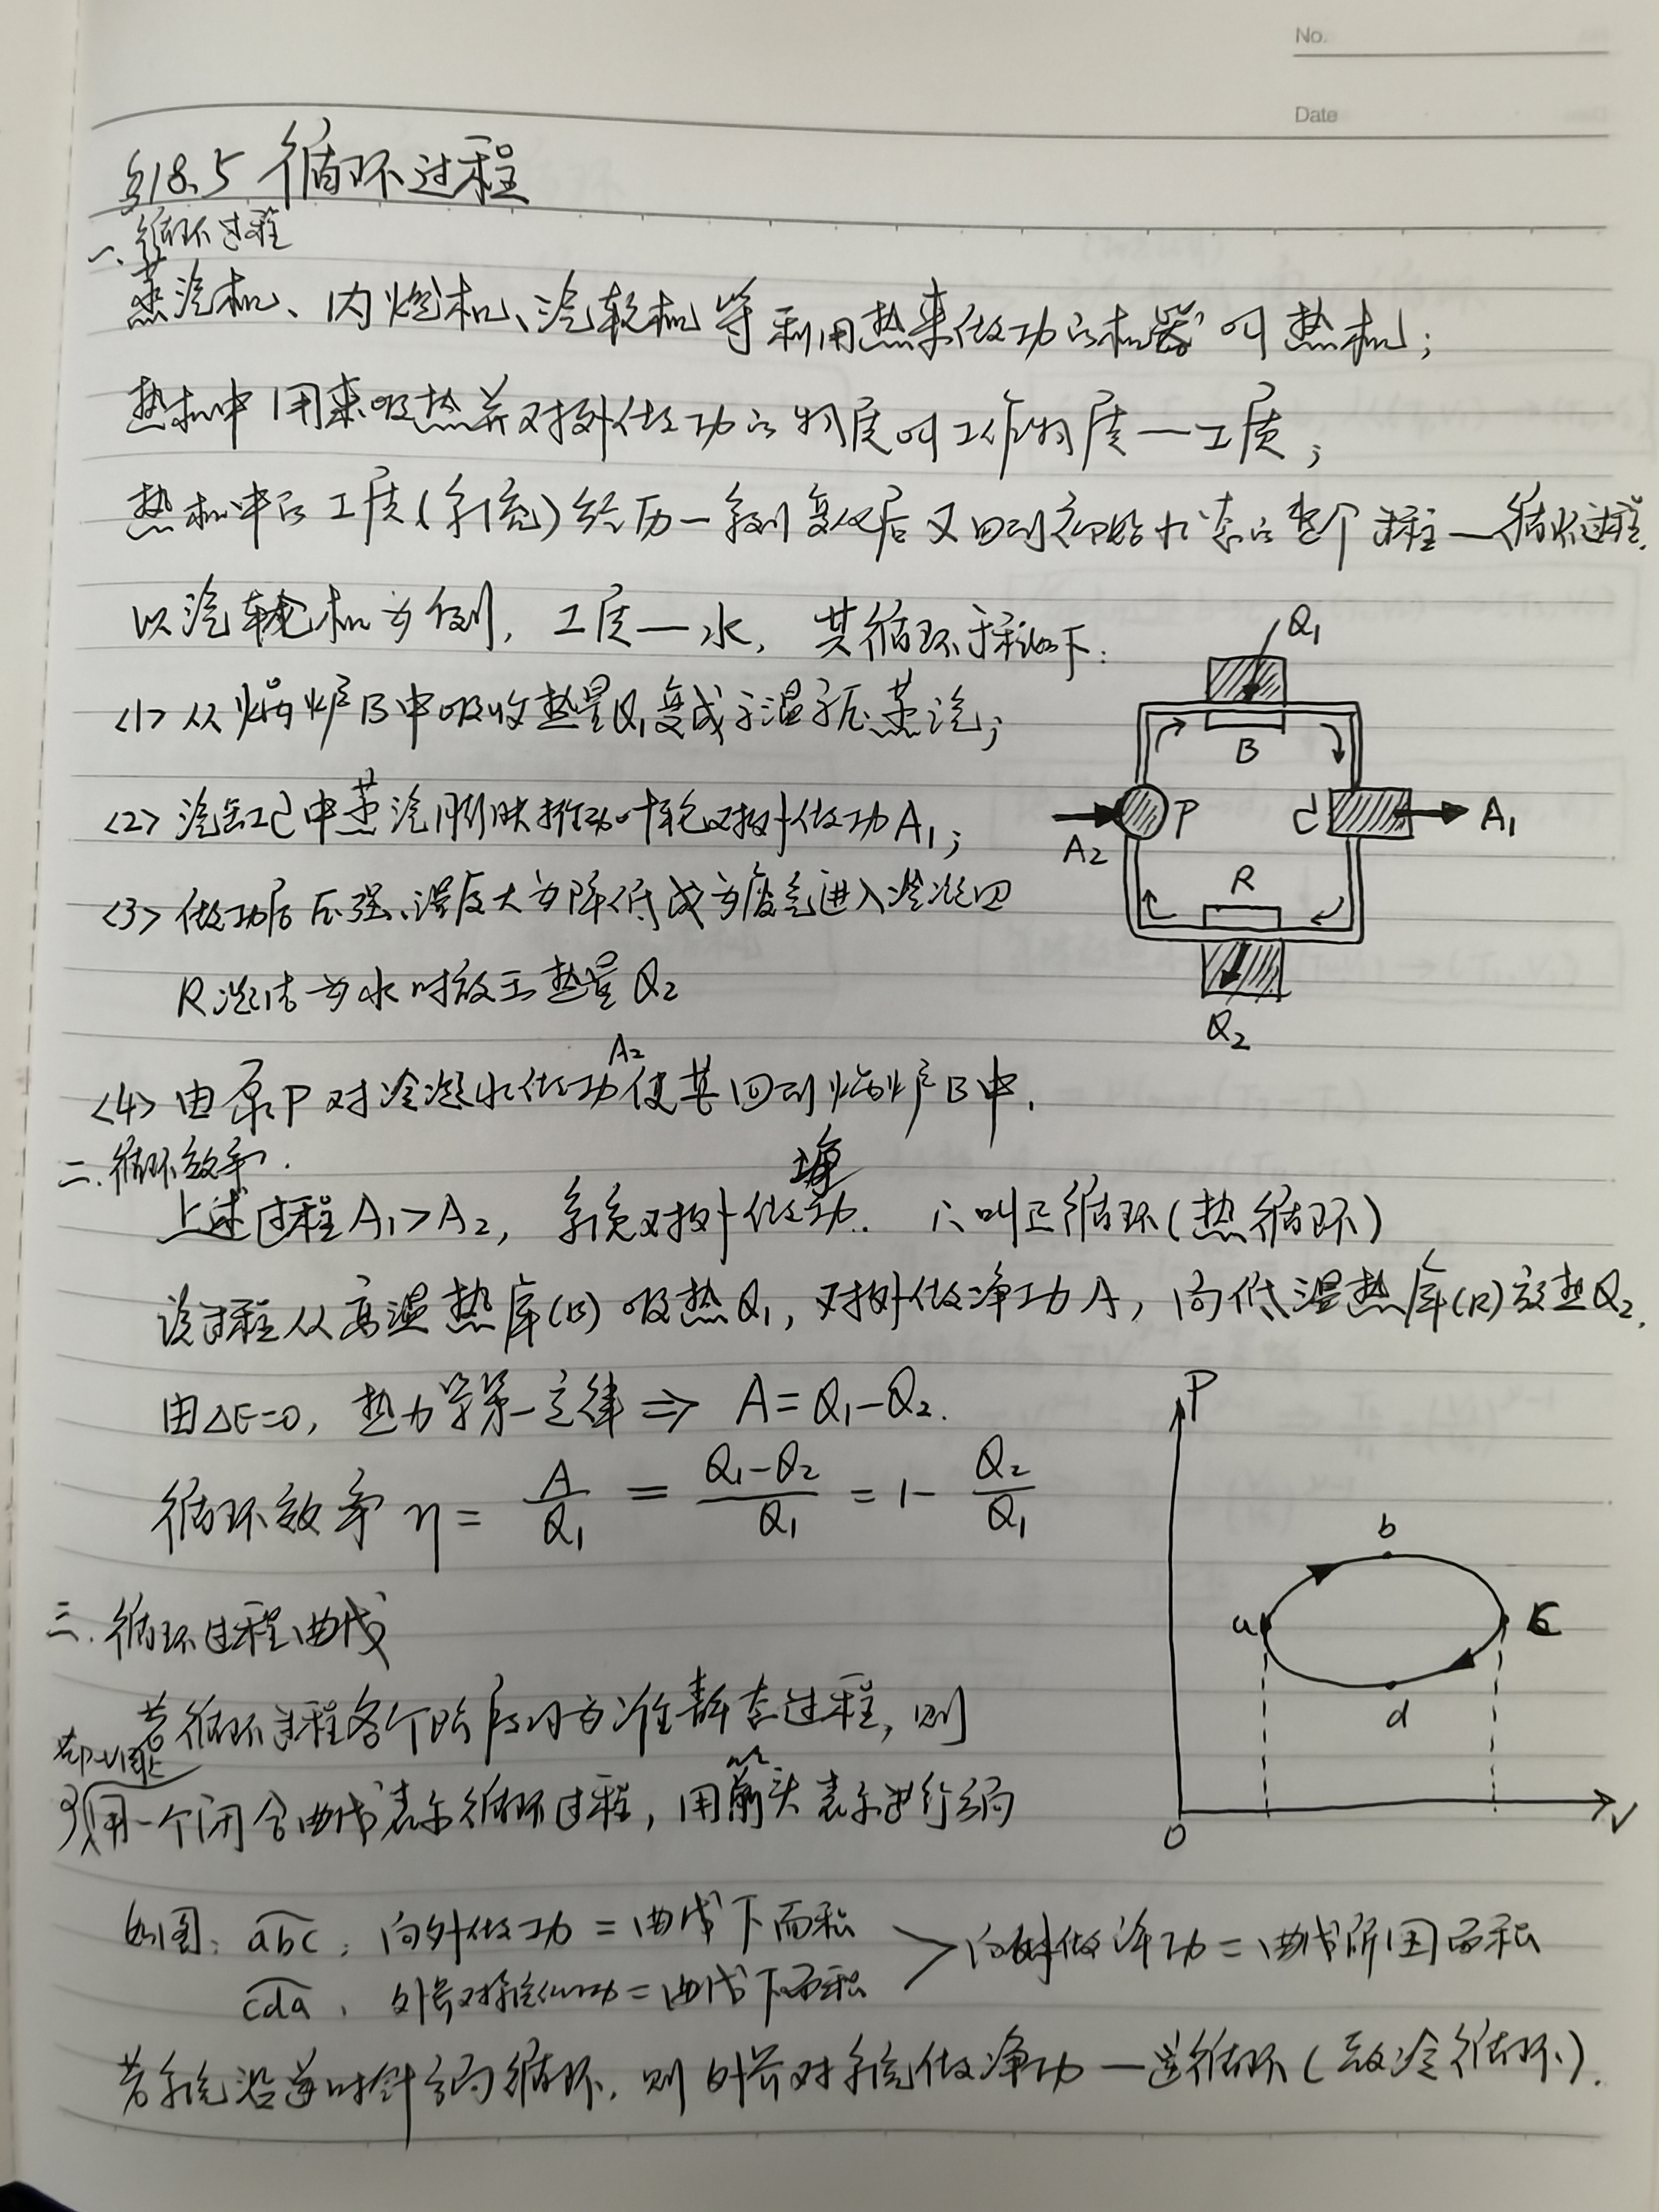 No.
Date
§18.5 循环过程
一、循环过程
蒸汽机、内燃机、汽轮机等利用热来做功的机器叫热机；
热机中用来吸热并对外做功的物质叫工作物质—工质；
热机中的工质(系统)经历一系列变化后又回到初始状态的整个过程—循环过程.
以汽轮机为例，工质—水，其循环过程如下：
<1> 从锅炉B中吸收热量Q₁变成高温高压蒸汽；
<2> 汽缸C中蒸汽膨胀推动叶轮对外做功A₁；
<3> 做功后压强、温度大为降低成为废气进入冷凝四
R凝结为水时放出热量Q₂
<4> 由泵P对冷凝水做功A₂使其回到锅炉B中.
Q₁
B
A₂
P
C
A₁
R
Q₂
二.循环效率.
上述过程A₁>A₂，系统对外做净功. 叫正循环(热循环)
该过程从高温热库(B)吸热Q₁，对外做净功A，向低温热库(R)放热Q₂.
由ΔE=0，热力学第一定律⇒ A=Q₁-Q₂.
循环效率η = A/Q₁ = (Q₁-Q₂)/Q₁ = 1- Q₂/Q₁
三.循环过程曲线
若循环过程各个阶段均为准静态过程，则
可用一个闭合曲线表示循环过程，用箭头表示进行方向
P
b
a
c
d
O
V
如图：abc：向外做功=曲线下面积
cda，外界对系统做功=曲线下面积
>向外做净功=曲线所围面积
若系统沿逆时针方向循环，则外界对系统做净功—逆循环(致冷循环).